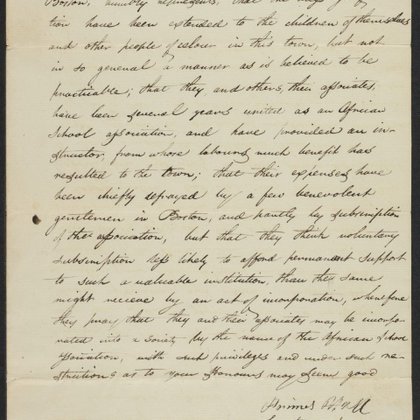 Boston, humbly represents, that the
tion have been extended to the children of themselves
and other people of colour in this town, but not
in so general a manner as is believed to be
practicable; that they and others, their associates,
have been several years united as an African
School association, and have provided an in-
structor, from whose labours much benefit has
resulted to the town; that their expenses have
been chiefly defrayed by a few benevolent
gentlemen in Boston, and partly by subscription
of the association, but that they think voluntary
subscription less likely to afford permanent support
to such a valuable institution, than the same
might recieve by an act of incorporation, wherefore
they pray that they and their associates may be incorpo-
rated into a society by the name of the African School
association, with such privileges and under such re-
strictions as to your Honours may seem good
Primus Hall